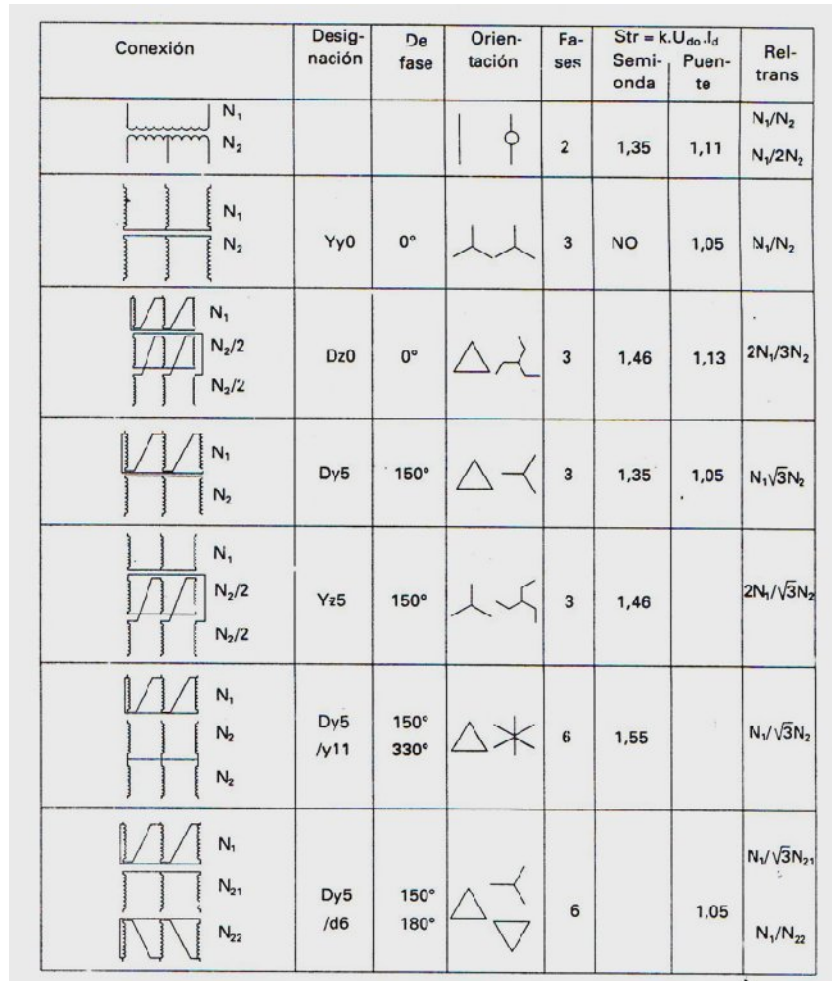 Conexión
Desig-
nación
De
fase
Orien-
tación
Fa-
ses
Str = k.Udo.Id
Semi-
onda
Puen-
te
Rel-
trans
N1
N2
2
1,35
1,11
N1/N2
N1/2N2
N1
N2
Yy0
0°
3
NO
1,05
N1/N2
N1
N2/2
N2/2
Dz0
0°
3
1,46
1,13
2N1/3N2
N1
N2
Dy5
150°
3
1,35
1,05
N1√3N2
N1
N2/2
N2/2
Yz5
150°
3
1,46
2N1/√3N2
N1
N2
N2
Dy5
/y11
150°
330°
6
1,55
N1/√3N2
N1
N21
N22
Dy5
/d6
150°
180°
6
1,05
N1/√3N21
N1/N22